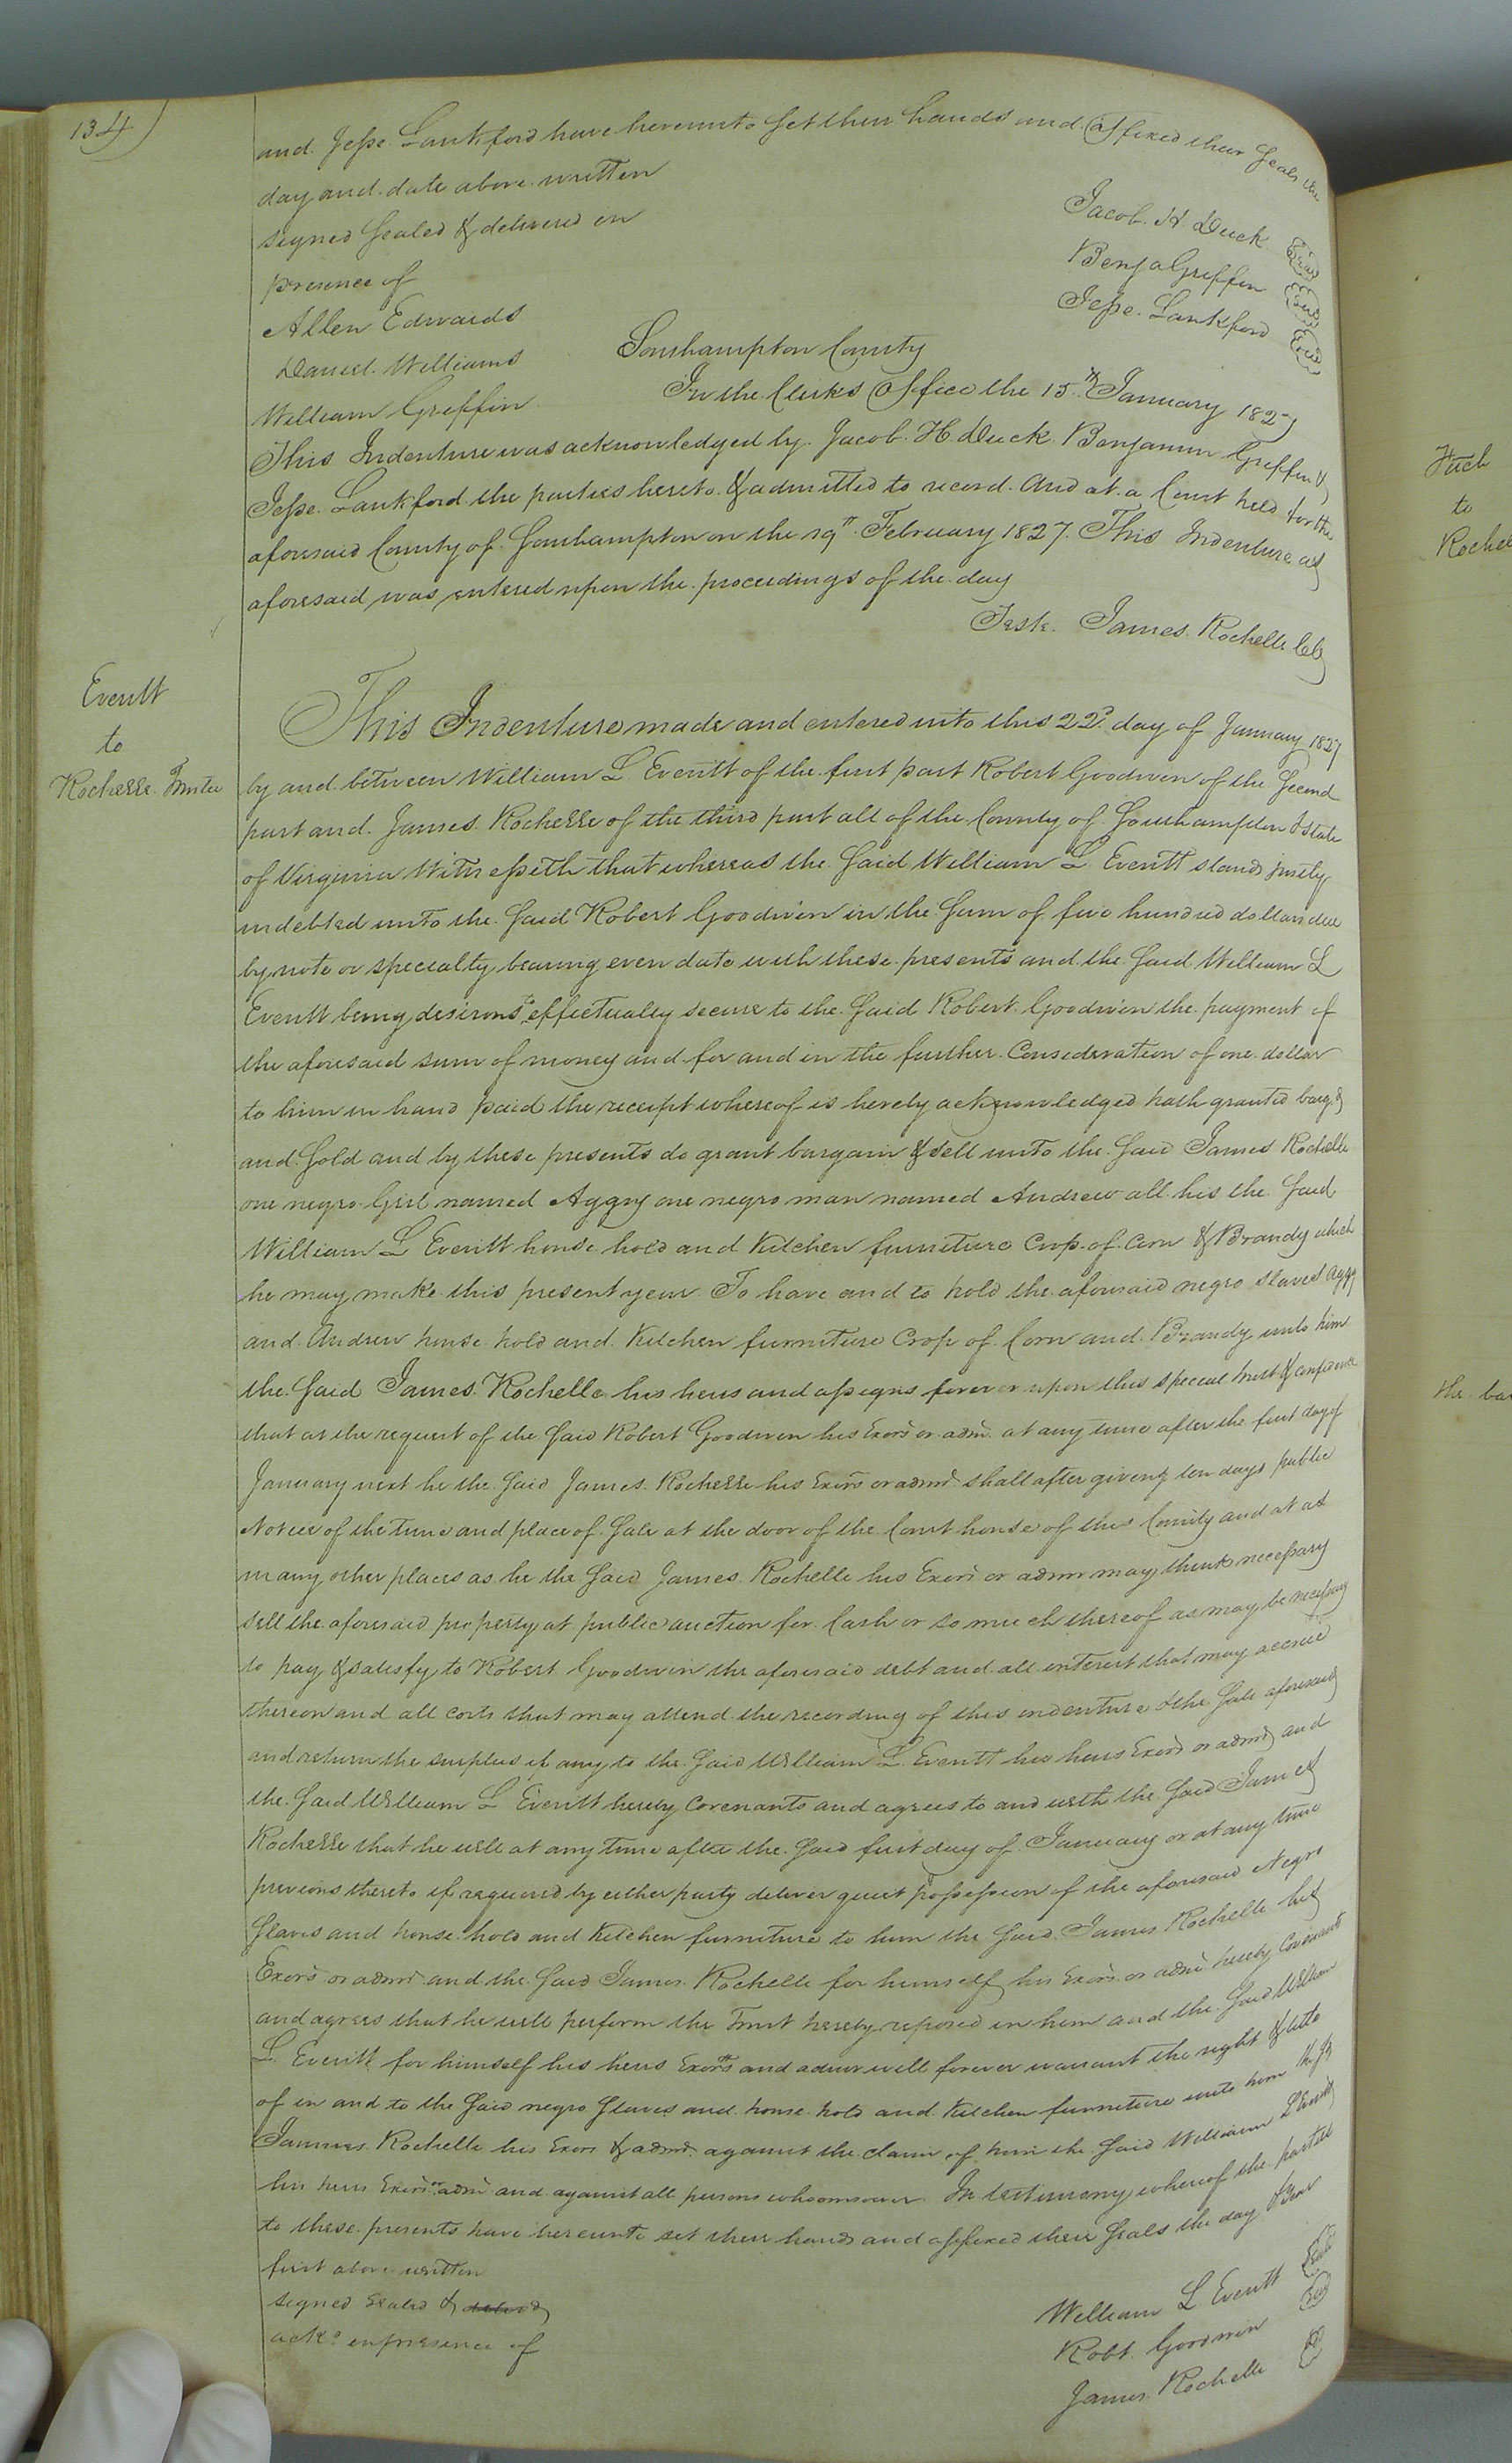 134
and Jesse Lankford have hereunto set their hands and affixed their seals the
day and date above written
signed sealed & delivered in
presence of
Jacob. H. Duck Seal
Benja Griffin Seal
Jesse Lankford Seal
Allen Edwards
Daniel Williams
William Griffin
Southampton County
In the Clerks Office the 15th January 1827
This Indenture was acknowledged by Jacob. H. Duck Benjamin Griffin &
Jesse Lankford the parties hereto & admitted to record. And at a Court held for the
aforesaid County of Southampton on the 19th February 1827. This Indenture as
aforesaid was entered upon the proceedings of the day
Teste. James Rochelle Clk
Everitt
to
Rochelle Trustee
This Indenture made and entered into this 22d day of January 1827
by and between William L Everitt of the first part Robert Goodwin of the Second
part and James Rochelle of the third part all of the County of Southampton & State
of Virginia Witnesseth that whereas the said William L Everitt stands justly
indebted unto the said Robert Goodwin in the sum of five hundred dollars due
by note or specialty bearing even date with these presents and the said William L
Everitt being desirous to effectually secure to the said Robert Goodwin the payment of
the aforesaid sum of money and for and in the further Consideration of one dollar
to him in hand paid the receipt whereof is hereby acknowledged hath granted barg.d
and sold and by these presents do grant bargain & sell unto the said James Rochelle
one negro Girl named Aggy one negro man named Andrew all his the said
William L Everitt house hold and Kitchen furniture Crop of Corn & Brandy which
he may make this present year To have and to hold the aforesaid negro slaves Aggy
and Andrew house hold and Kitchen furniture Crop of Corn and Brandy unto him
the said James Rochelle his heirs and assigns forever upon this special trust & confidence
that at the request of the said Robert Goodwin his Exors or admr. at any time after the first day of
January next he the said James Rochelle his Exors or admrs shall after giving ten days public
Notice of the time and place of sale at the door of the Court house of this County and at as
many other places as he the said James Rochelle his Exors or admr may think necessary
sell the aforesaid property at public auction for Cash or so much thereof as may be necessary
to pay & satisfy to Robert Goodwin the aforesaid debt and all interest that may accrue
thereon and all costs that may attend the recording of this indenture & the sale aforesaid
and return the surplus if any to the said William L. Everitt his heirs Exors or admrs and
the said William L Everitt hereby Covenants and agrees to and with the said James
Rochelle that he will at any time after the said first day of January or at any time
previous thereto if required by either party deliver quiet possession of the aforesaid Negro
Slaves and house hold and Kitchen furniture to him the said James Rochelle his
Exors or admrs and the said James Rochelle for himself his Exors or admrs hereby Covenants
and agrees that he will perform the Trust hereby reposed in him and the said William
L. Everitt for himself his heirs Exors and admr will forever warrant the right & title
of in and to the said negro Slaves and house hold and Kitchen furniture unto him the sd
James Rochelle his Exors & admrs against the claim of him the said William L Everitt
his heirs Exors or admr and against all persons whomsoever. In testimony whereof the parties
to these presents have hereunto set their hands and affixed their seals the day & year
first above written
signed sealed &
ackd in presence of
William L. Everitt Seal
Robt. Goodwin Seal
James Rochelle Seal
Hich
to
Roche